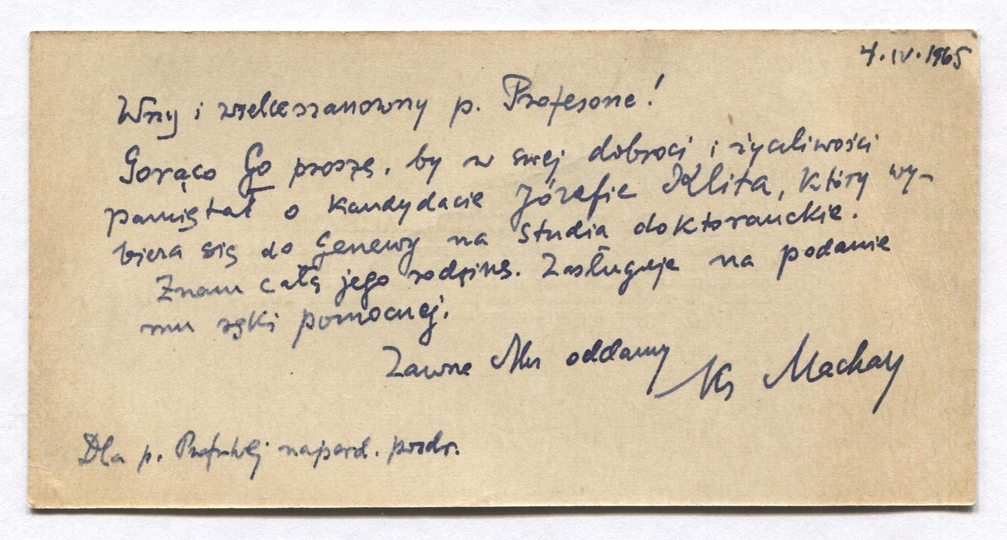 4.IV.1965
Wny i wielceszanowny p. Profesorze!
Gorąco Go proszę, by w swej dobroci i życzliwości
pamiętał o kandydacie Józefie Klita, który wy-
biera się do Genewy na studia doktoranckie.
Znam całą jego rodzinę. Zasługuje na podanie
mu ręki pomocnej.
Zawsze Mu oddany Ks Machay
Dla p. najserd. pozdr.